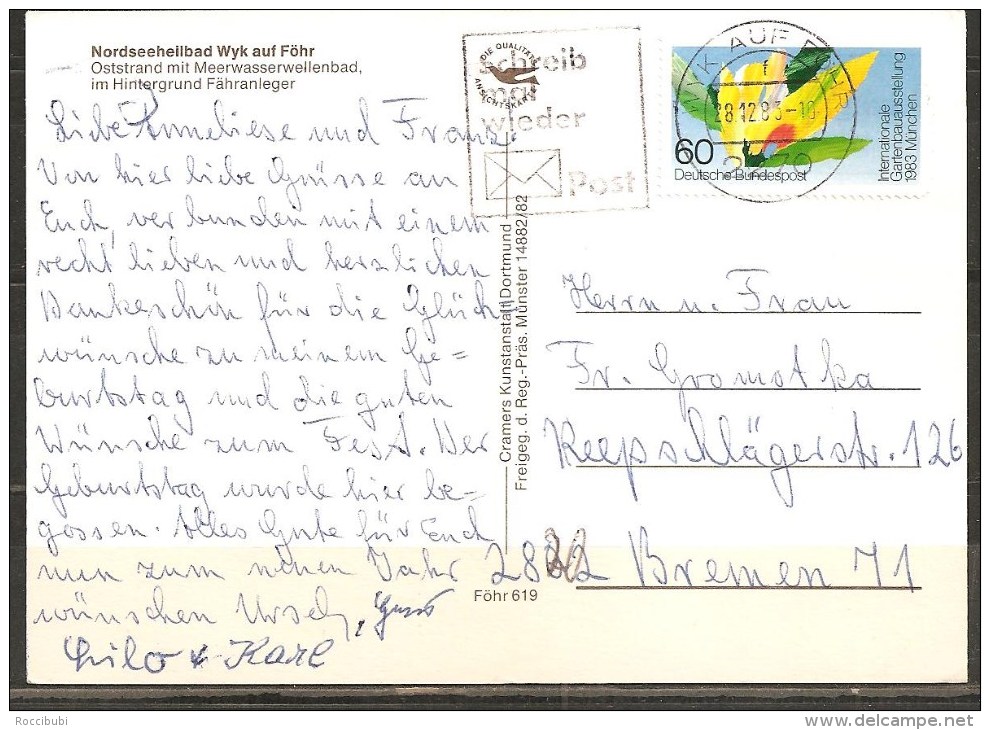 Nordseeheilbad Wyk auf Föhr
Oststrand mit Meerwasserwellenbad,
im Hintergrund Fähranleger
Liebe Anneliese und Franz
Von hier liebe Grüsse an
Euch, verbunden mit einem
recht lieben und herzlichen
Dankeschön für die Glück
wünsche zu meinem Ge=
burtstag und die guten
Wünsche zum Fest. Der
Geburtstag wurde hier be=
gossen. Alles Gute für Euch
nun zum neuen Jahr
wünschen Ursel,
Lilo + Karl
Föhr 619
Cramers Kunstanstalt Dortmund
Freigeg. d. Reg.-Präs. Münster 14882/82
DIE QUALITÄTS
ANSICHTSKARTE
schreib
mal
wieder
Post
AUF FÖHR
28.12.83-10
60
Deutsche Bundespost
Internationale
Gartenbauausstellung
1983 München
Herrn u. Frau
Fr. Gromotka
Reepschlägerstr. 126
Bremen 71
Roccibubi
delcampe.net